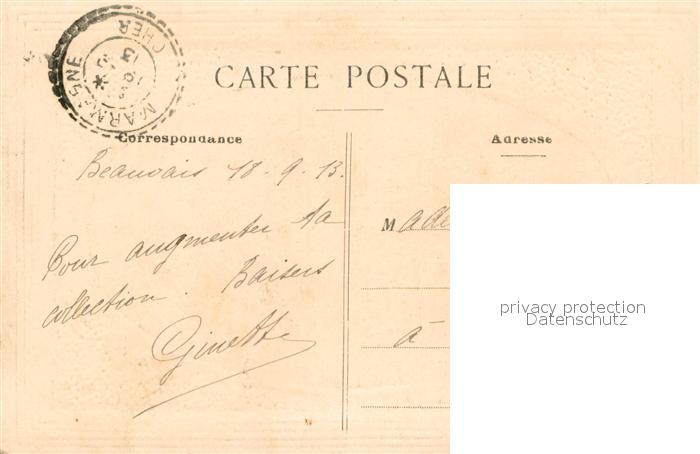 MARMAGNE
CHER
CARTE POSTALE
Correspondance
Adresse
Beauvais 18-9-13.
Pour augmenter ta
collection. Baisers
Ginette
Made
à
privacy protection
Datenschutz